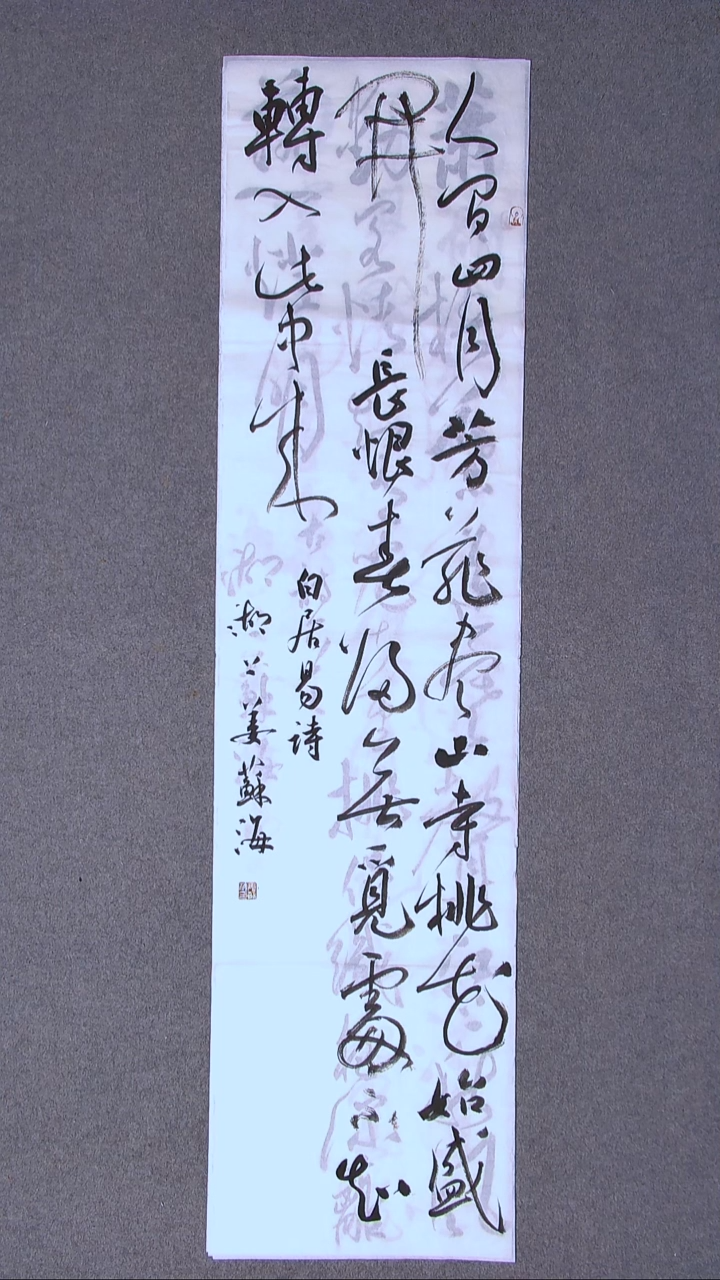 人間四月芳菲盡山寺桃花始盛
開長恨春歸無覓處不知
轉入此中來
白居易詩
湖上姜蘇海